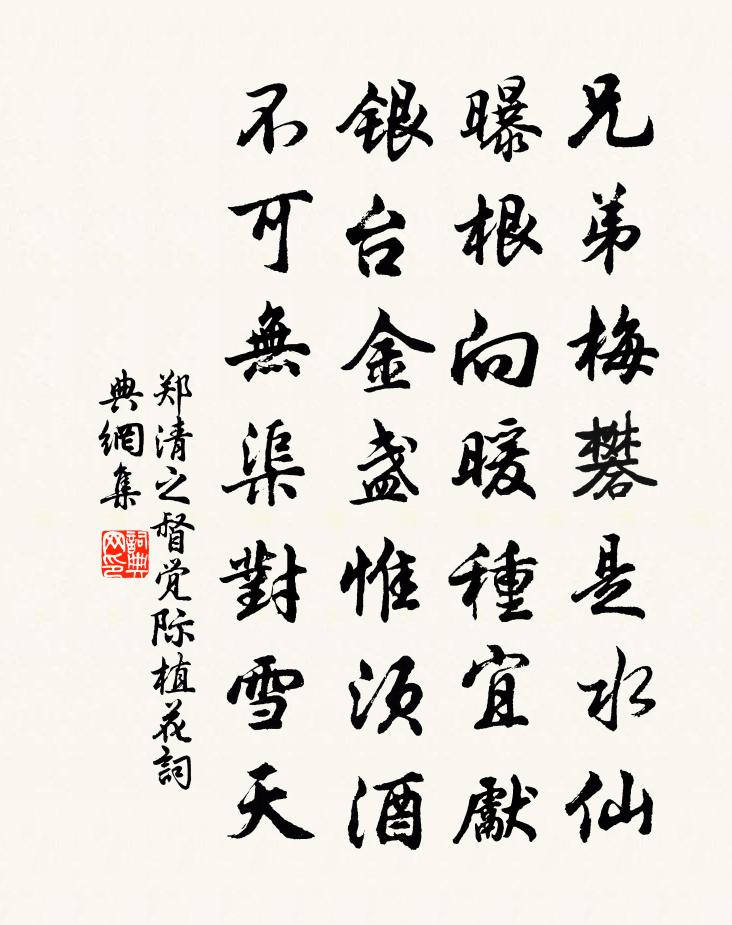 兄弟梅礬是水仙
曝根向暖種宜獻
銀台金盞惟須酒
不可無渠對雪天
郑清之督觉际植花詞
典網集
詞典
网印